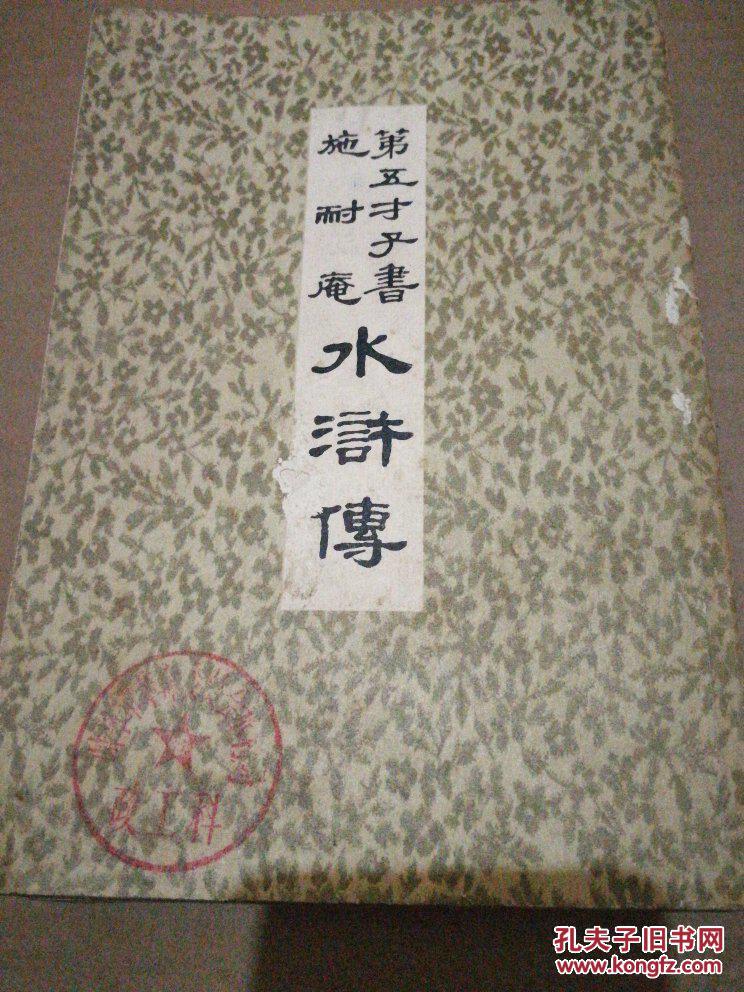 第五才子書
施耐庵
水滸傳
政工科
孔夫子旧书网
www.kongfz.com